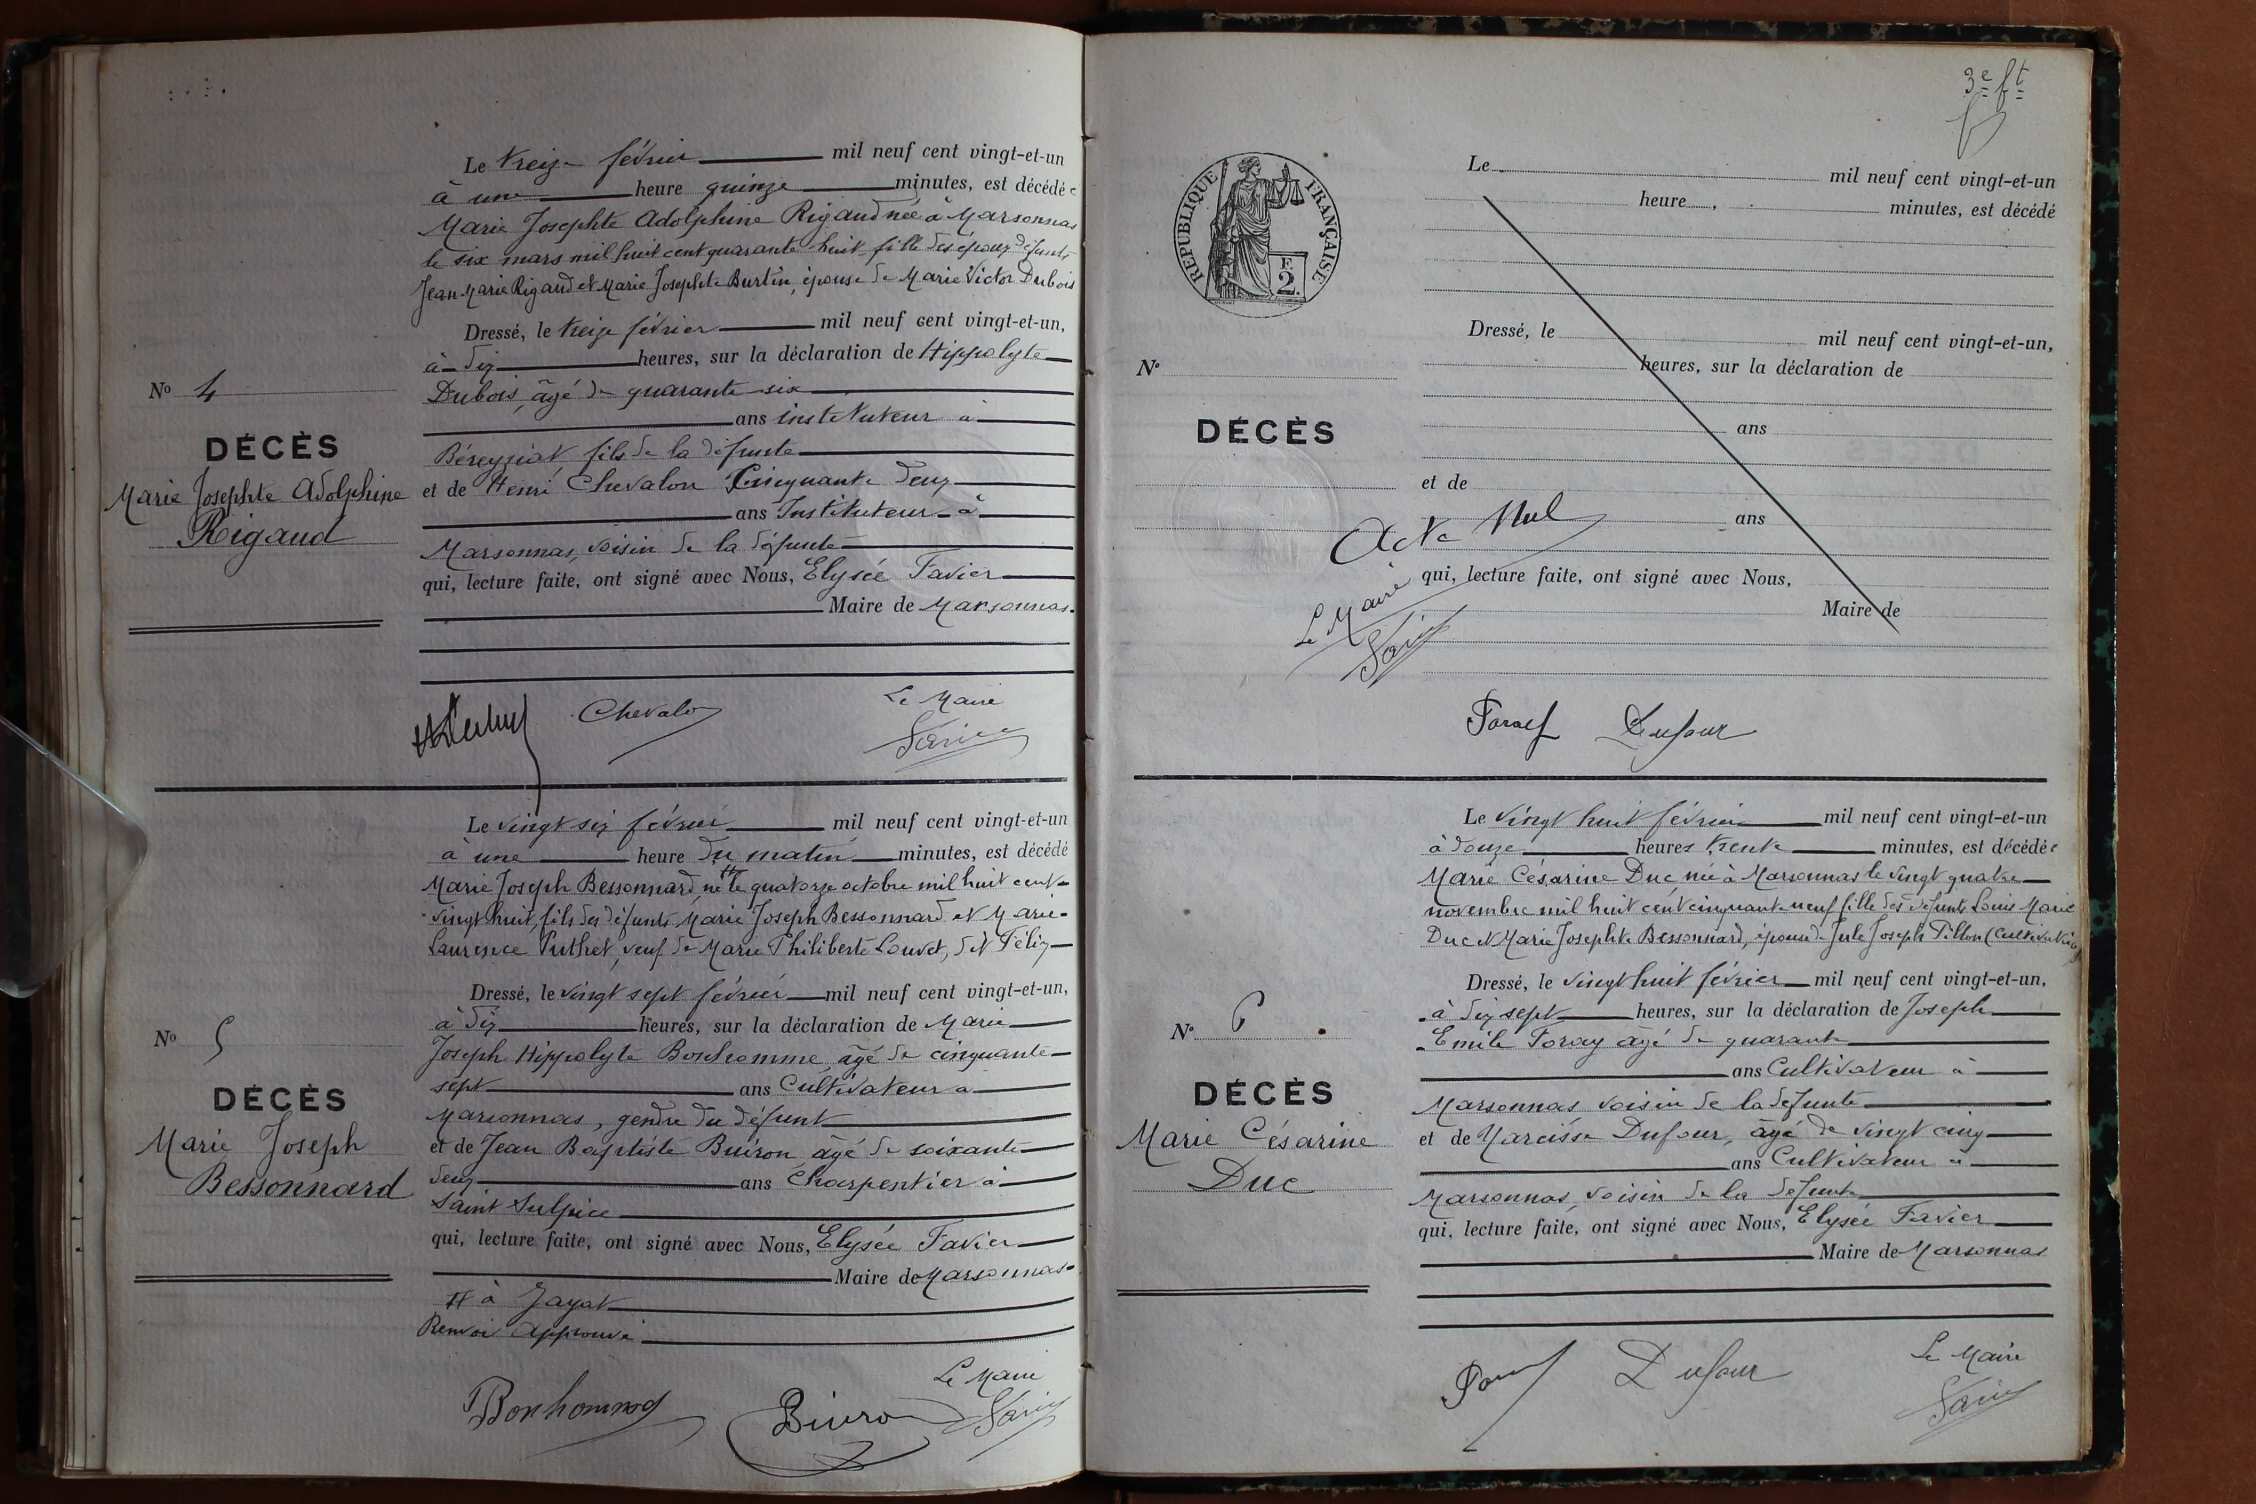 Le treize février mil neuf cent vingt-et-un
à une heure quinze minutes, est décédée
Marie Josephte Adolphine Rigaud née à Marsonnas
le six mars mil huit cent quarante huit fille des époux défunts
Jean Marie Rigaud et Marie Josephte Burtin, épouse de Marie Victor Dubois
Dressé, le treize février mil neuf cent vingt-et-un,
à dix heures, sur la déclaration de Hippolyte
Dubois, âgé de quarante six
ans instituteur à
Béreyziat fils de la défunte
et de Henri Chevalon cinquante deux
ans Instituteur à
Marsonnas, voisin de la défunte
qui, lecture faite, ont signé avec Nous, Elysée Favier
Maire de Marsonnas.
No 4
DÉCÈS
Marie Josephte Adolphine
Rigaud
Chevalon
Le Maire
Favier
Le vingt six février mil neuf cent vingt-et-un
à une heure du matin minutes, est décédé
Marie Joseph Bessonnard né # le quatorze octobre mil huit cent
vingt huit, fils des défunts Marie Joseph Bessonnard et Marie
Laurence Puthet, veuf de Marie Philiberte Louvet, dit Félix
Dressé, le vingt sept février mil neuf cent vingt-et-un,
à dix heures, sur la déclaration de Marie
Joseph Hippolyte Bonhomme, âgé de cinquante
sept ans Cultivateur à
Marsonnas, gendre du défunt
et de Jean Baptiste Buiron, âgé de soixante
deux ans Charpentier à
Saint Sulpice
qui, lecture faite, ont signé avec Nous, Elysée Favier
Maire de Marsonnas
# à Jayat
Renvoi approuvé
No 5
DÉCÈS
Marie Joseph
Bessonnard
Bonhomme
Buiron
Le Maire
Favier
3e ft
RÉPUBLIQUE FRANÇAISE
F.
2.
Le mil neuf cent vingt-et-un
heure minutes, est décédé
Dressé, le mil neuf cent vingt-et-un,
heures, sur la déclaration de
ans
et de
ans
qui, lecture faite, ont signé avec Nous,
Maire de
No
DÉCÈS
Acte Nul
Le Maire
Favier
Foray Dufour
Le vingt huit février mil neuf cent vingt-et-un
à douze heures trente minutes, est décédée
Marie Césarine Duc née à Marsonnas le vingt quatre
novembre mil huit cent cinquante neuf fille des défunts Louis Marie
Duc et Marie Josephte Bessonnard, épouse de Jule Joseph Pillon (Cultivatrice)
Dressé, le vingt huit février mil neuf cent vingt-et-un,
à dix sept heures, sur la déclaration de Joseph
Emile Foray âgé de quarante
ans Cultivateur à
Marsonnas voisin de la défunte
et de Narcisse Dufour, âgé de vingt cinq
ans Cultivateur à
Marsonnas, voisin de la défunte
qui, lecture faite, ont signé avec Nous, Elysée Favier
Maire de Marsonnas
No 6
DÉCÈS
Marie Césarine
Duc
Foray
Dufour
Le Maire
Favier